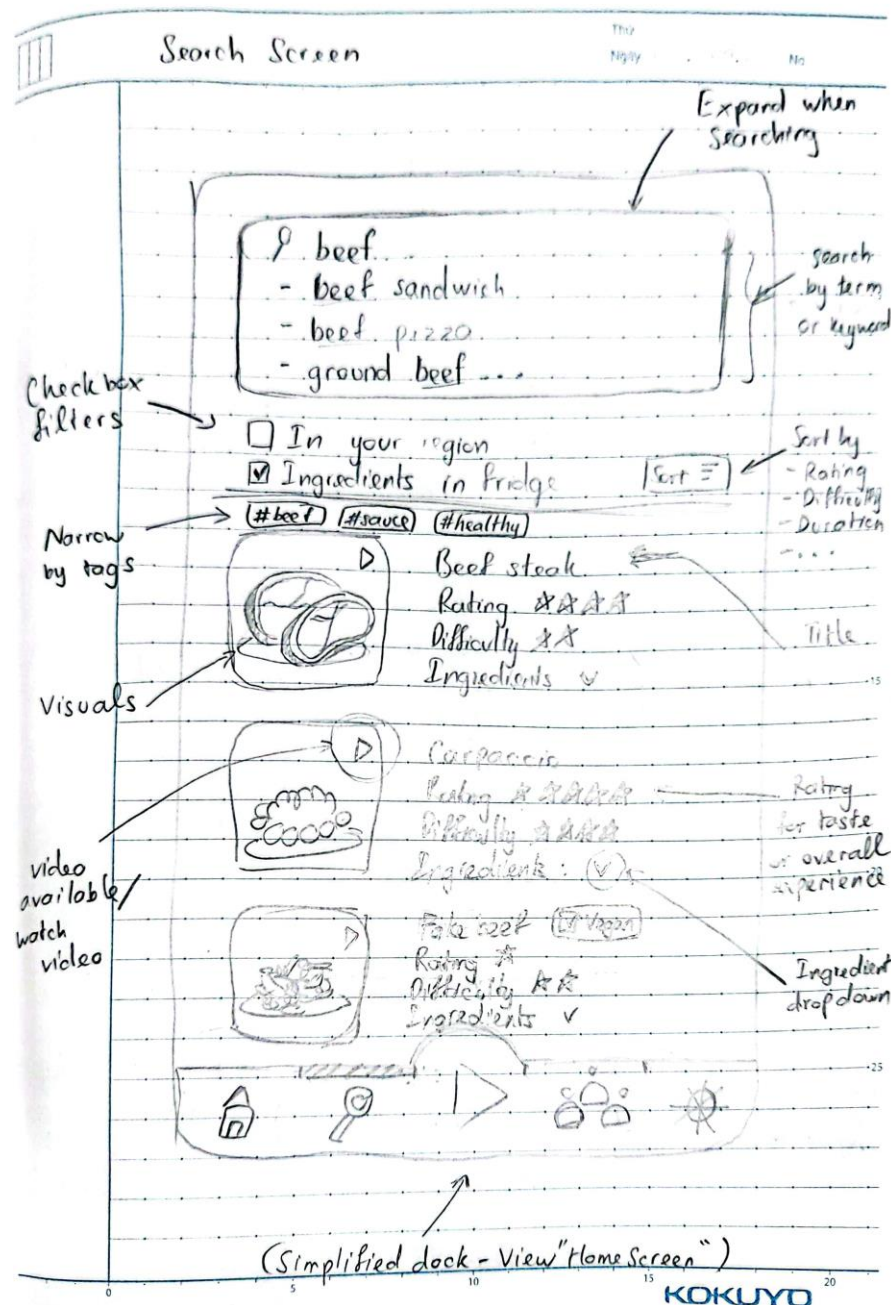 Search Screen
Thứ
Ngày
No
Expand when
searching
beef
- beef sandwich
- beef pizza
- ground beef ...
search
by term
or keyword
Checkbox
filters
In your region
Ingredients in fridge
Sort
Sort by
- Rating
- Difficulty
- Duration
- ...
Narrow
by tags
#beef #sauce #healthy
Beef steak
Rating
Difficulty
Ingredients
Title
Visuals
15
Carpaccio
Rating
Difficulty
Ingredients :
Rating
for taste
or overall
experience
video
available/
watch
video
Fake beef Vegan
Rating
Difficulty
Ingredients
Ingredient
dropdown
25
(Simplified dock - View "Home Screen")
0 5 10 15 20
KOKUYO